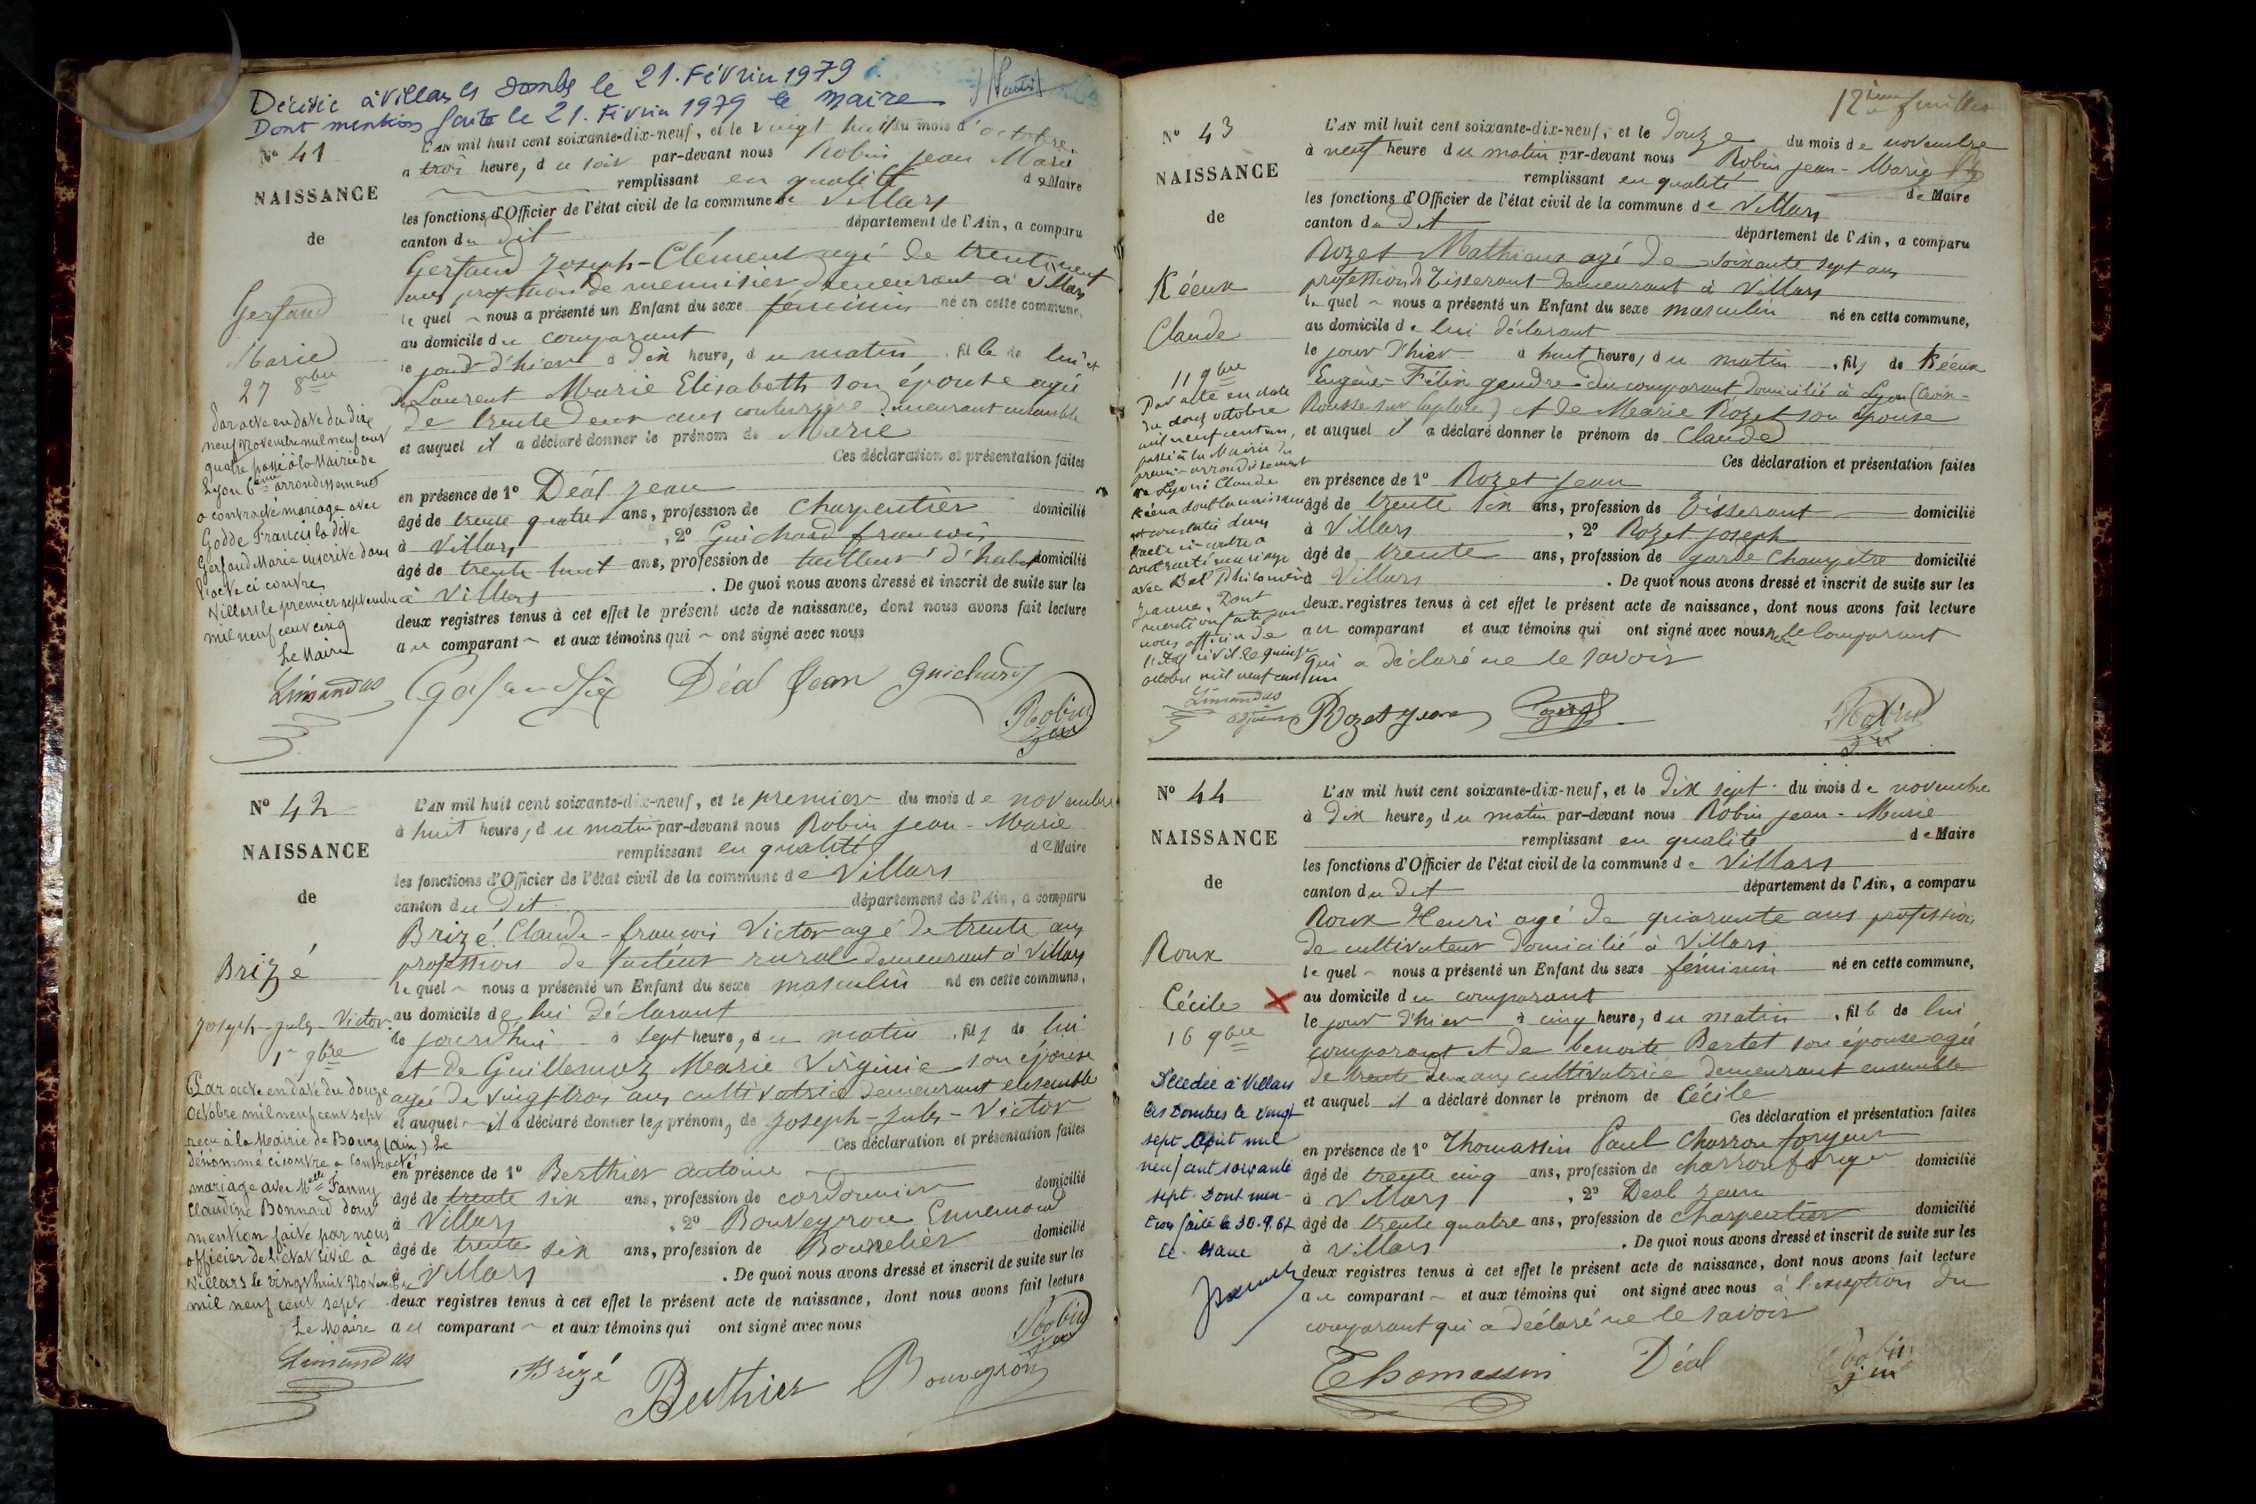 Décédée à Villars les Dombes le 21. Février 1979
Dont mention faite le 21. Février 1979 le Maire
N° 41
NAISSANCE
de
Gersaud
Marie
27 8bre
Par acte en date du dix
neuf Novembre mil neuf cent
quatre passé à la Mairie de
Lyon 6eme arrondissement
a contracté mariage avec
Godde Francis la dite
Gersaud Marie inscrite dans
l'acte ci contre
Villars le premier septembre
mil neuf cent cinq
Le Maire
Limandas
L'AN mil huit cent soixante-dix-neuf, et le vingt huit du mois d'octobre
a trois heure, du soir par-devant nous Robin Jean Marie
remplissant en qualité de Maire
les fonctions d'Officier de l'état civil de la commune de Villars
canton du dit département de l'Ain, a comparu
Gersaud Joseph-Clément agé de trente neuf
ans profession de menuisier demeurant à Villars
le quel nous a présenté un Enfant du sexe féminin né en cette commune,
au domicile du comparant
le jour d'hier à dix heure, du matin, fille de lui et
de Laurent Marie Elisabeth son épouse agée
de trente deux ans couturière demeurant ensemble
et auquel il a déclaré donner le prénom de Marie
Ces déclaration et présentation faites
en présence de 1° Déal Jean
âgé de trente quatre ans, profession de charpentier domicilié
à Villars, 2° Guichard françois
âgé de trente huit ans, profession de tailleur d'habit domicilié
à Villars. De quoi nous avons dressé et inscrit de suite sur les
deux registres tenus à cet effet le présent acte de naissance, dont nous avons fait lecture
au comparant et aux témoins qui ont signé avec nous
Déal Jean Guichard
Robin
N° 42
NAISSANCE
de
Brizé
Joseph-Jules-Victor
1er 9bre
Par acte en date du douze
Octobre mil neuf cent sept
reçu à la Mairie de Bourg (Ain) Le
dénommé ci contre a contracté
mariage avec Melle Fanny
Claudine Bonnard dont
mention faite par nous
officier de l'état civil à
Villars le vingt huit Novembre
mil neuf cent sept
Le Maire
Limandas
L'AN mil huit cent soixante-dix-neuf, et le premier du mois de novembre
à huit heure, du matin par-devant nous Robin Jean-Marie
remplissant en qualité de Maire
les fonctions d'Officier de l'état civil de la commune de Villars
canton du dit département de l'Ain, a comparu
Brizé Claude-françois Victor agé de trente ans
profession de facteur rural demeurant à Villars
le quel nous a présenté un Enfant du sexe masculin né en cette commune,
au domicile de lui déclarant
le jourd'hui à sept heure, du matin, fils de lui
et de Guillemoz Marie Virginie son épouse
agée de vingt trois ans cultivatrice demeurant ensemble
et auquel il a déclaré donner les prénoms de Joseph-Jules-Victor
Ces déclaration et présentation faites
en présence de 1° Berthier antoine
âgé de trente six ans, profession de cordonnier domicilié
à Villars, 2° Bouveyron Ennemond
âgé de trente six ans, profession de Bourrelier domicilié
à Villars. De quoi nous avons dressé et inscrit de suite sur les
deux registres tenus à cet effet le présent acte de naissance, dont nous avons fait lecture
au comparant et aux témoins qui ont signé avec nous
Robin
Brizé Berthier Bouveyron
12ième feuillet
N° 43
NAISSANCE
de
Kéeux
Claude
11 9bre
Par acte en date
du douze octobre
mil neuf cent un,
passé à la Mairie du
premier arrondissement
de Lyon: Claude
Kéeux dont la naissance
est constatée dans
l'acte ci-contre a
contracté mariage
avec Bel Philomène
Jeanne. Dont
mention faite par
nous officier de
l'Etat civil le quinze
octobre mil neuf cent un
Limandas
adjoint
L'AN mil huit cent soixante-dix-neuf, et le douze du mois de novembre
à neuf heure du matin par-devant nous Robin Jean-Marie
remplissant en qualité de Maire
les fonctions d'Officier de l'état civil de la commune de Villars
canton du dit département de l'Ain, a comparu
Rozet Mathieux agé de soixante sept ans
profession de Tisserant demeurant à Villars
le quel nous a présenté un Enfant du sexe masculin né en cette commune,
au domicile de lui déclarant
le jour d'hier à huit heure, du matin, fils de Kéeux
Eugène-Félix gendre du comparant domicilié à Lyon (Croix-
Rousse sur) et de Marie Rozet son épouse
et auquel il a déclaré donner le prénom de Claude
Ces déclaration et présentation faites
en présence de 1° Rozet Jean
âgé de trente six ans, profession de Tisserant domicilié
à Villars, 2° Rozet Joseph
âgé de trente ans, profession de garde champêtre domicilié
à Villars. De quoi nous avons dressé et inscrit de suite sur les
deux registres tenus à cet effet le présent acte de naissance, dont nous avons fait lecture
au comparant et aux témoins qui ont signé avec nous non le comparant
qui a déclaré ne le savoir
Rozet Jean Robin
N° 44
NAISSANCE
de
Roux
Cécile
16 9bre
Décédée à Villars
les Dombes le vingt
sept Août mil
neuf cent soixante
sept. Dont men-
tion faite le 30.9.67
Le Maire
L'AN mil huit cent soixante-dix-neuf, et le dix sept du mois de novembre
à dix heure, du matin par-devant nous Robin Jean-Marie
remplissant en qualité de Maire
les fonctions d'Officier de l'état civil de la commune de Villars
canton du dit département de l'Ain, a comparu
Roux Henri agé de quarante ans profession
de cultivateur domicilié à Villars
le quel nous a présenté un Enfant du sexe féminin né en cette commune,
au domicile du comparant
le jour d'hier à cinq heure, du matin, fille de lui
comparant et de benoite Bertet son épouse agée
de trente deux ans cultivatrice demeurant ensemble
et auquel il a déclaré donner le prénom de Cécile
Ces déclaration et présentation faites
en présence de 1° Thomassin Paul charron forgeur
âgé de trente cinq ans, profession de charron forgeur domicilié
à Villars, 2° Déal Jean
âgé de trente quatre ans, profession de charpentier domicilié
à Villars. De quoi nous avons dressé et inscrit de suite sur les
deux registres tenus à cet effet le présent acte de naissance, dont nous avons fait lecture
au comparant et aux témoins qui ont signé avec nous à l'exception du
comparant qui a déclaré ne le savoir
Thomassin Déal Robin